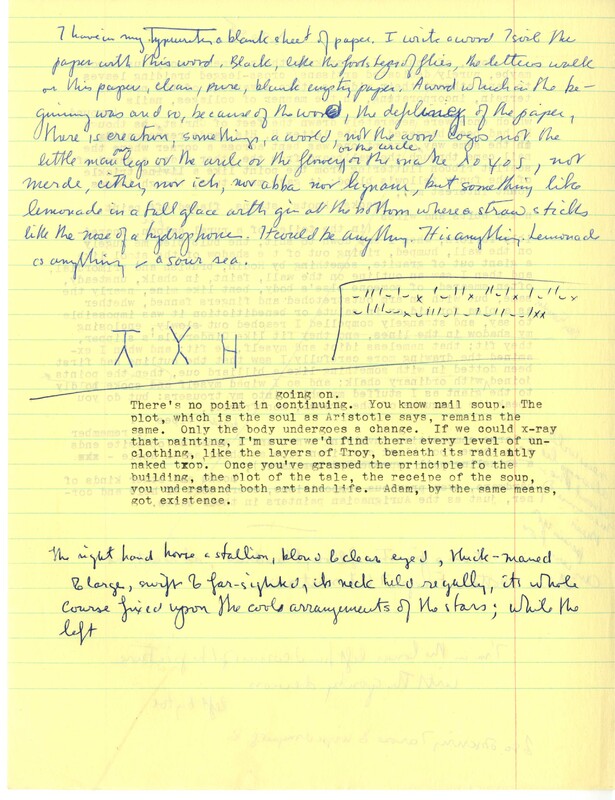 I have in my typewriter a blank sheet of paper. I write a word I soil the
paper with this word. Black, like the foot legs of flies, the letters walk
on this paper, clean, pure, blank empty paper. A word which in the be-
ginning was and so, because of the word, the of the paper,
there is creation, something, a world, not the word logos not the
or the circle
little man legs or the circle or the flower or the snake λογος, not
merde, either, nor ich, nor abba nor lignum, but something like
lemonade in a tall glace with gin at the bottom where a straw sticks
like the nose of a hydrophone. It could be anything. It is anything. Lemonade
is anything – a sour sea.
T Y H
going on.
There's no point in continuing. You know nail soup. The
plot, which is the soul as Aristotle says, remains the
same. Only the body undergoes a change. If we could x-ray
that painting, I'm sure we'd find there every level of un-
clothing, like the layers of Troy, beneath its radiantly
naked txop. Once you've grasped the principle fo the
building, the plot of the tale, the receipe of the soup,
you understand both art and life. Adam, by the same means,
got existence.
The right hand horse a stallion, blond & clear eyed, thick-maned
& large, swift & far-sighted, its neck held regally, its whole
course fixed upon the cool arrangements of the stars; while the
left